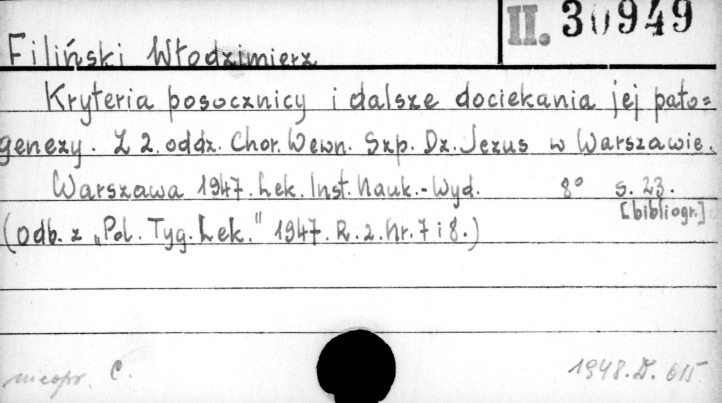 II. 30949
Filiński Włodzimierz
Kryteria posocznicy i dalsze dociekania jej pato=
genezy. Z 2. oddz. Chor. Wewn. Szp. Dz. Jezus w Warszawie.
Warszawa 1947. Lek. Inst. Nauk.-Wyd. 8° s. 23.
[bibliogr.]
(odb. z „Pol. Tyg. Lek." 1947. R. 2. Nr. 7 i 8.)
nieopr. C. 1948. D. 615